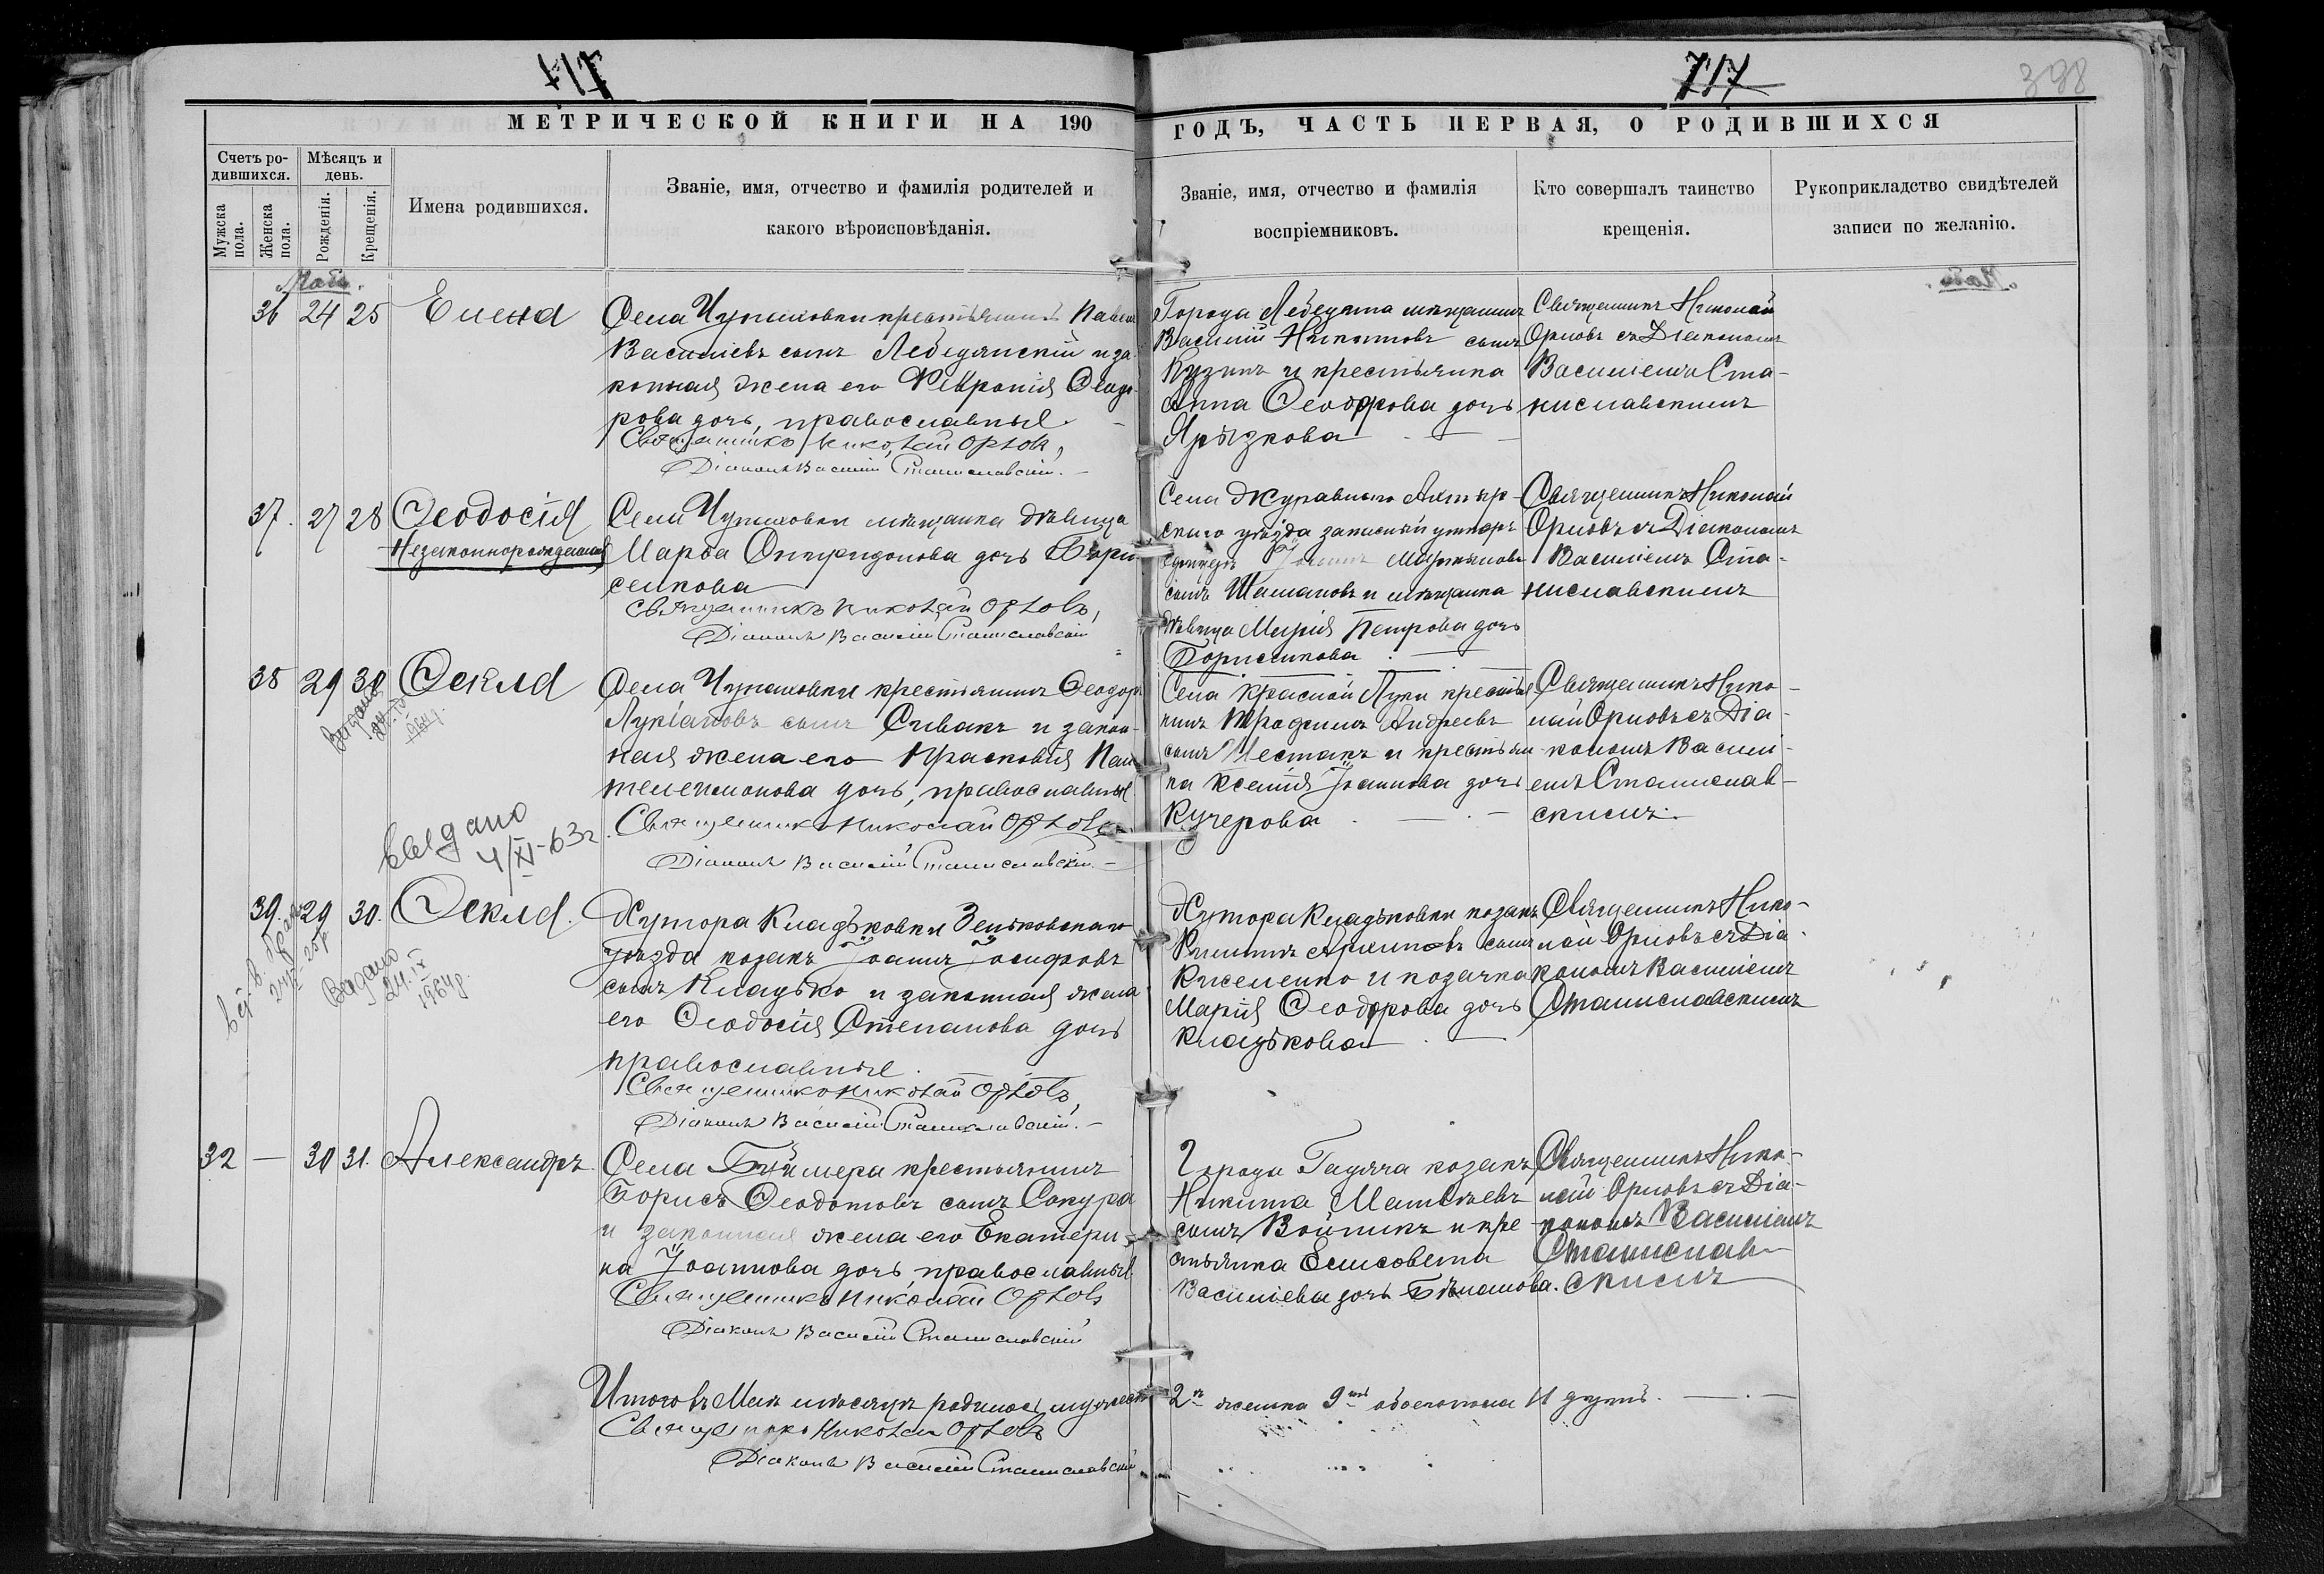 717
717
398
МЕТРИЧЕСКОЙ КНИГИ НА 190
ГОДЪ, ЧАСТЬ ПЕРВАЯ, О РОДИВШИХСЯ
Счетъ ро-
дившихся.
Мужска
пола.
Женска
пола.
Мѣсяцъ и
день.
Рожденія.
Крещенія.
Имена родившихся.
Званіе, имя, отчество и фамилія родителей и
какого вѣроисповѣданія.
Званіе, имя, отчество и фамилія
воспріемниковъ.
Кто совершалъ таинство
крещенія.
Рукоприкладство свидѣтелей
записи по желанію.
Май.
36 24 25 Елена
Села Чупаховки крестьянинъ Павелъ
Василіевъ сынъ Лебедянскій и за-
конная жена его Февронія Ѳеодо-
рова дочь, православные
Священникъ Николай Орловъ,
Діаконъ Василій Станиславскій.
Города Лебедина мѣщанинъ
Василій Никитовъ сынъ
Кузинъ и крестьянка
Анна Ѳеодорова дочь
Ярызкова
Священникъ Николай
Орловъ съ Діакономъ
Василіемъ Ста-
ниславскимъ
37. 27 28 Ѳеодосія
Незаконнорожденная
Села Чупаховки мѣщанка дѣвица
Марѳа Спиридонова дочь Бори-
сенкова
Священникъ Николай Орловъ,
Діаконъ Василій Станиславскій
Села Журавнаго Ахтыр-
скаго уѣзда запасный унтеръ
Іоаннъ
сынъ Шамановъ и мѣщанка
дѣвица Марія Петрова дочь
Борисенкова
Священникъ Николай
Орловъ съ Діакономъ
Василіемъ Ста-
ниславскимъ
38 29 30 Ѳекла
Видано
24.IV
1964р.
Села Чупаховки крестьянинъ Ѳеодоръ
Лукіановъ сынъ Сивакъ и закон-
ная жена его Парасковія Пан-
телеимонова дочь, православные
Священникъ Николай Орловъ
Діаконъ Василій Станиславскій.
Села Красной Луки крестья-
нинъ Трофимъ Андреевъ
сынъ Шестакъ и крестьян-
ка Ксенія Іоаннова дочь
Кучерова
Священникъ Нико-
лай Орловъ съ Діа-
кономъ Василі-
емъ Станислав-
скимъ.
видано
4/XI-63г
39. 29 30. Ѳекла.
Видано
24.IX
1964р.
Хутора Кладьковки Зеньковскаго
уѣзда козакъ Іоаннъ Іосифовъ
сынъ Кладько и законная жена
его Ѳеодосія Степанова дочь
православные.
Священникъ Николай Орловъ,
Діаконъ Василій Станиславскій.
Хутора Кладьковки козакъ
Филиппъ Архиповъ сынъ
Киселенко и козачка
Марія Ѳеодорова дочь
Кладькова
Священникъ Нико-
лай Орловъ съ Діа-
кономъ Василіемъ
Станиславскимъ
32 — 30 31. Александръ
Села Буймера крестьянинъ
Борисъ Ѳеодотовъ сынъ Сокура
и законная жена его Екатери-
на Іоаннова дочь, православные
Священникъ Николай Орловъ
Діаконъ Василій Станиславскій
Города Гадяча козакъ
Никита Матвѣевъ
сынъ Войтикъ и кре-
стьянка Елисовета
Василіева дочь Бѣланова.
Священникъ Нико-
лай Орловъ съ Діа-
кономъ Василіемъ
Станислав-
скимъ
Итого въ Маѣ мѣсяцѣ родилось мужеск
2 женска 9 обоего пола 11 душъ.
Священникъ Николай Орловъ
Діаконъ Василій Станиславскій